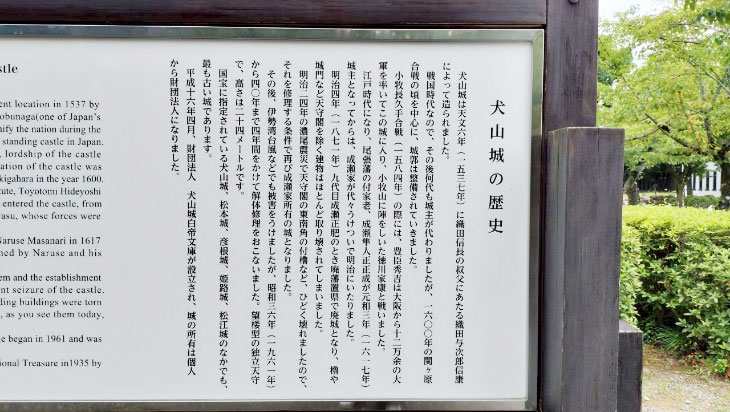 犬山城の歴史
犬山城は天文六年（一五三七年）に織田信長の叔父にあたる織田与次郎信康
によって造られました。
戦国時代なので、その後何代も城主が代わりましたが、一六〇〇年の関ヶ原
合戦の頃を中心に、城郭は整備されていきました。
小牧長久手合戦（一五八四年）の際には、豊臣秀吉は大阪から十二万余の大
軍を率いてこの城に入り、小牧山に陣をしいた徳川家康と戦いました。
江戸時代になり、尾張藩の付家老、成瀬隼人正正成が元和三年（一六一七年）
城主となってからは、成瀬家が代々うけついで明治にいたりました。
明治四年（一八七一年）九代目成瀬正肥のとき廃藩置県で廃城となり、櫓や
城門など天守閣を除く建物はほとんど取り壊されてしまいました。
明治二四年の濃尾震災で天守閣の東南角の付櫓など、ひどく壊れましたので、
それを修理する条件で再び成瀬家所有の城となりました。
その後、伊勢湾台風などでも被害をうけましたが、昭和三六年（一九六一年）
から四〇年まで四年間をかけて解体修理をおこないました。望楼型の独立天守
で、高さは二十四メートルです。
国宝に指定されている犬山城、松本城、彦根城、姫路城、松江城のなかでも、
最も古い城であります。
平成十六年四月、財団法人　犬山城白帝文庫が設立され、城の所有は個人
から財団法人になりました。
stle
ent location in 1537 by
obunaga(one of Japan's
nify the nation during the
standing castle in Japan.
, lordship of the castle
ation of the castle was
kigahara in the year 1600.
ute, Toyotomi Hideyoshi
entered the castle, from
asu, whose forces were
Naruse Masanari in 1617
ned by Naruse and his
em and the establishment
ent seizure of the castle.
ding buildings were torn
, as you see them today,
e began in 1961 and was
ional Treasure in1935 by